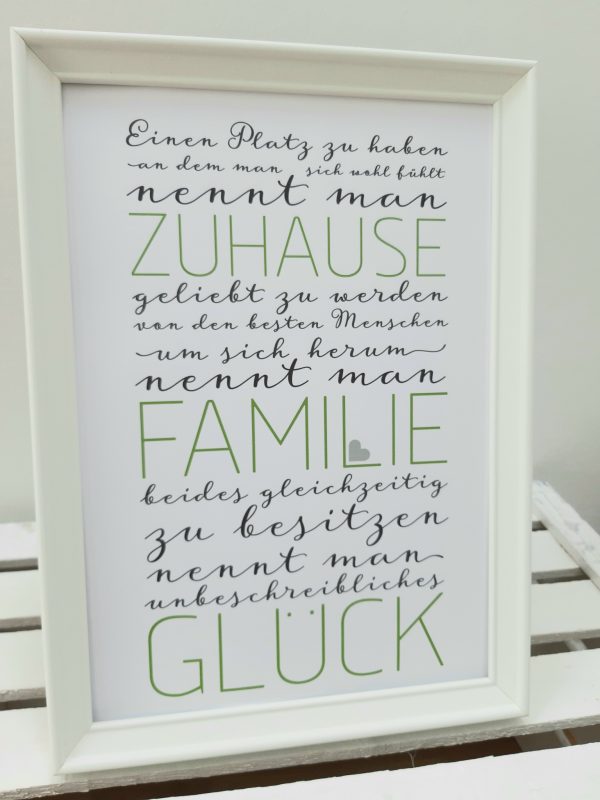 Einen Platz zu haben
an dem man sich wohl fühlt
nennt man
ZUHAUSE
geliebt zu werden
von den besten Menschen
um sich herum
nennt man
FAMILIE
beides gleichzeitig
zu besitzen
nennt man
unbeschreibliches
GLÜCK